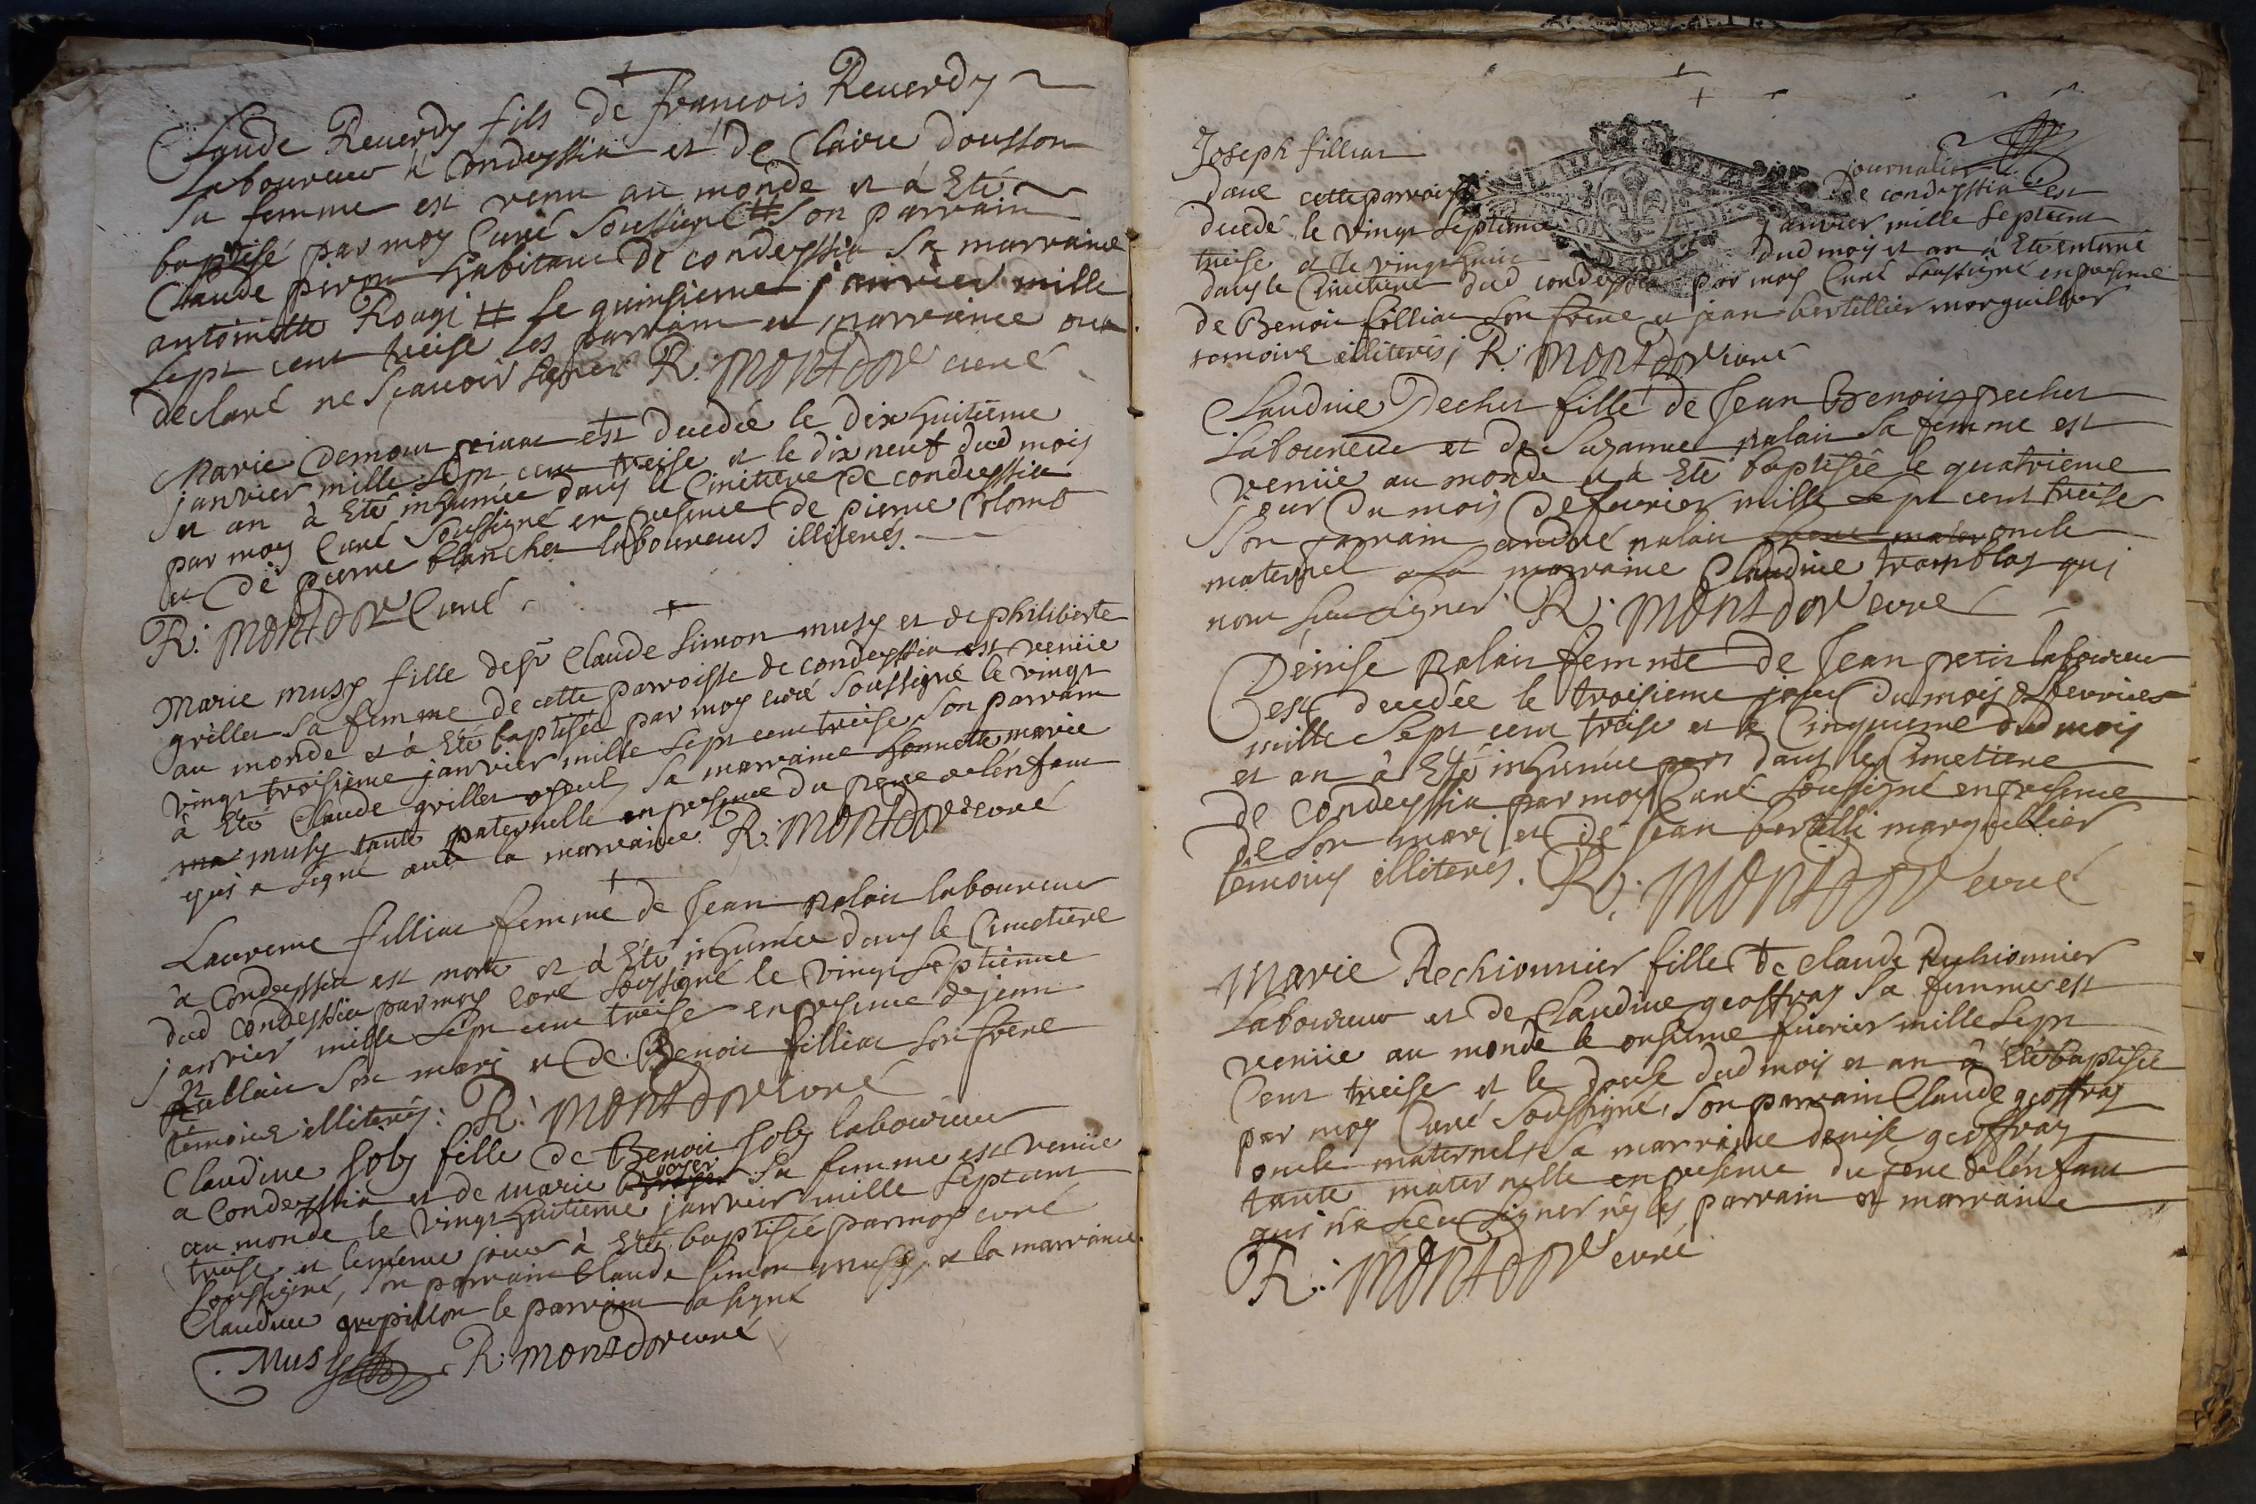 Claude Reuerdy fils De francois Reuerdy
Laboureur à Condeyssia et De Claire dousson
Sa femme est venu au monde et à Eté
baptisé par moy Curé Soussigné # Son parrain
Claude piron habitant De condeyssia Sa marraine
antoinette Rougi # le quinsieme janvier mille
sept cent treise les parrain et marraine ont
declaré ne sçauoir signer R: MONTDOR curé
Marie est decedée le Dixhuitieme
janvier mille sept cent treise et le dix neuf dud mois
et an à Eté inhumée dans le Cimetiere De condeyssia
par moy Curé Soussigné en presence de pierre Colomb
et De pierre blanchet laboureurs illiterés.
R: MONTDOR Curé
Marie musy fille de sr Claude Simon musy et de philiberte
grillet sa femme de cette parroisse de condeyssia est venüe
au monde et à Eté baptisée par moy curé soussigné le vingt
vingt troisieme janvier mille sept cent treise son parrain
à Eté Claude grillet ayeul, sa marraine honnette marie
ma musy tante paternelle en presence du pere de lénfant
qui a signé auec la marraine R: MONTDOR curé
Laurence filliat femme de Jean palais laboureur
à Condeyssia est morte et à Eté inhumée dans le Cimetiere
dud condeyssia par moy curé soussigné le vingt septieme
janvier mille sept cent treise en presence de jean
pallais son mary et De Benoit filliat son frere
témoins illiterés: R: MONTDOR curé
Claudine Joly fille De Benoit Joly laboureur
a Condeyssia et de marie
boyer
Sa femme est venüe
au monde le vingt huitieme janvier mille sept cent
treise et le même jour à Eté baptisée par moy curé
soussigné, son parrain Claude simon musy, et la marraine
Claudine grepillon le parrain a signé
Musy R: MONTDOR curé
Joseph filliat journalier
dans cette parroisse De condeyssia est
decedé le vingt septieme janvier mille sept cent
treise et le vingt huit dud moy et an à Eté enterré
dans le Cimetiere dud condeyssia par moy Curé soussigné en presence
de Benoit filliat son frere et jean bertillier marguillier
temoins illiterés; R: MONTDOR curé
Claudine Pechet fille De Jean Benoit pechet
Laboureur et de Suzanne palais sa femme est
venüe au monde et à Eté baptisée le quatrieme
jour Du mois De feurier mille sept cent treise
Son parrain andré palais oncle
maternel sa marraine Claudine tramblay qui
nont sceu signer. R: MONTDOR curé
Denise palais femme de Jean petit laboureur
est decedée le troisieme jour Du mois de feurier
mille sept cent treise et le Cinquieme dud mois
et an à Eté inhumée dans le Cimetiere
De condeyssia par moy Curé soussigné en presence
de son mari et de jean bertilli marguillier
témoins illiterés. R: MONTDOR curé
Marie Rechionnier fille De Claude Rechionnier
Laboureur et de Claudine geoffray sa femme est
venüe au monde le onsieme feurier mille sept
Cent treise et le douse dud mois et an à Eté baptisée
par moy Curé soussigné, Son parrain Claude geoffray
oncle maternel, sa marraine denise geoffray
tante maternelle en presence du pere de lénfant
qui na sceu signer ny les parrain et marraine
R: MONTDOR curé